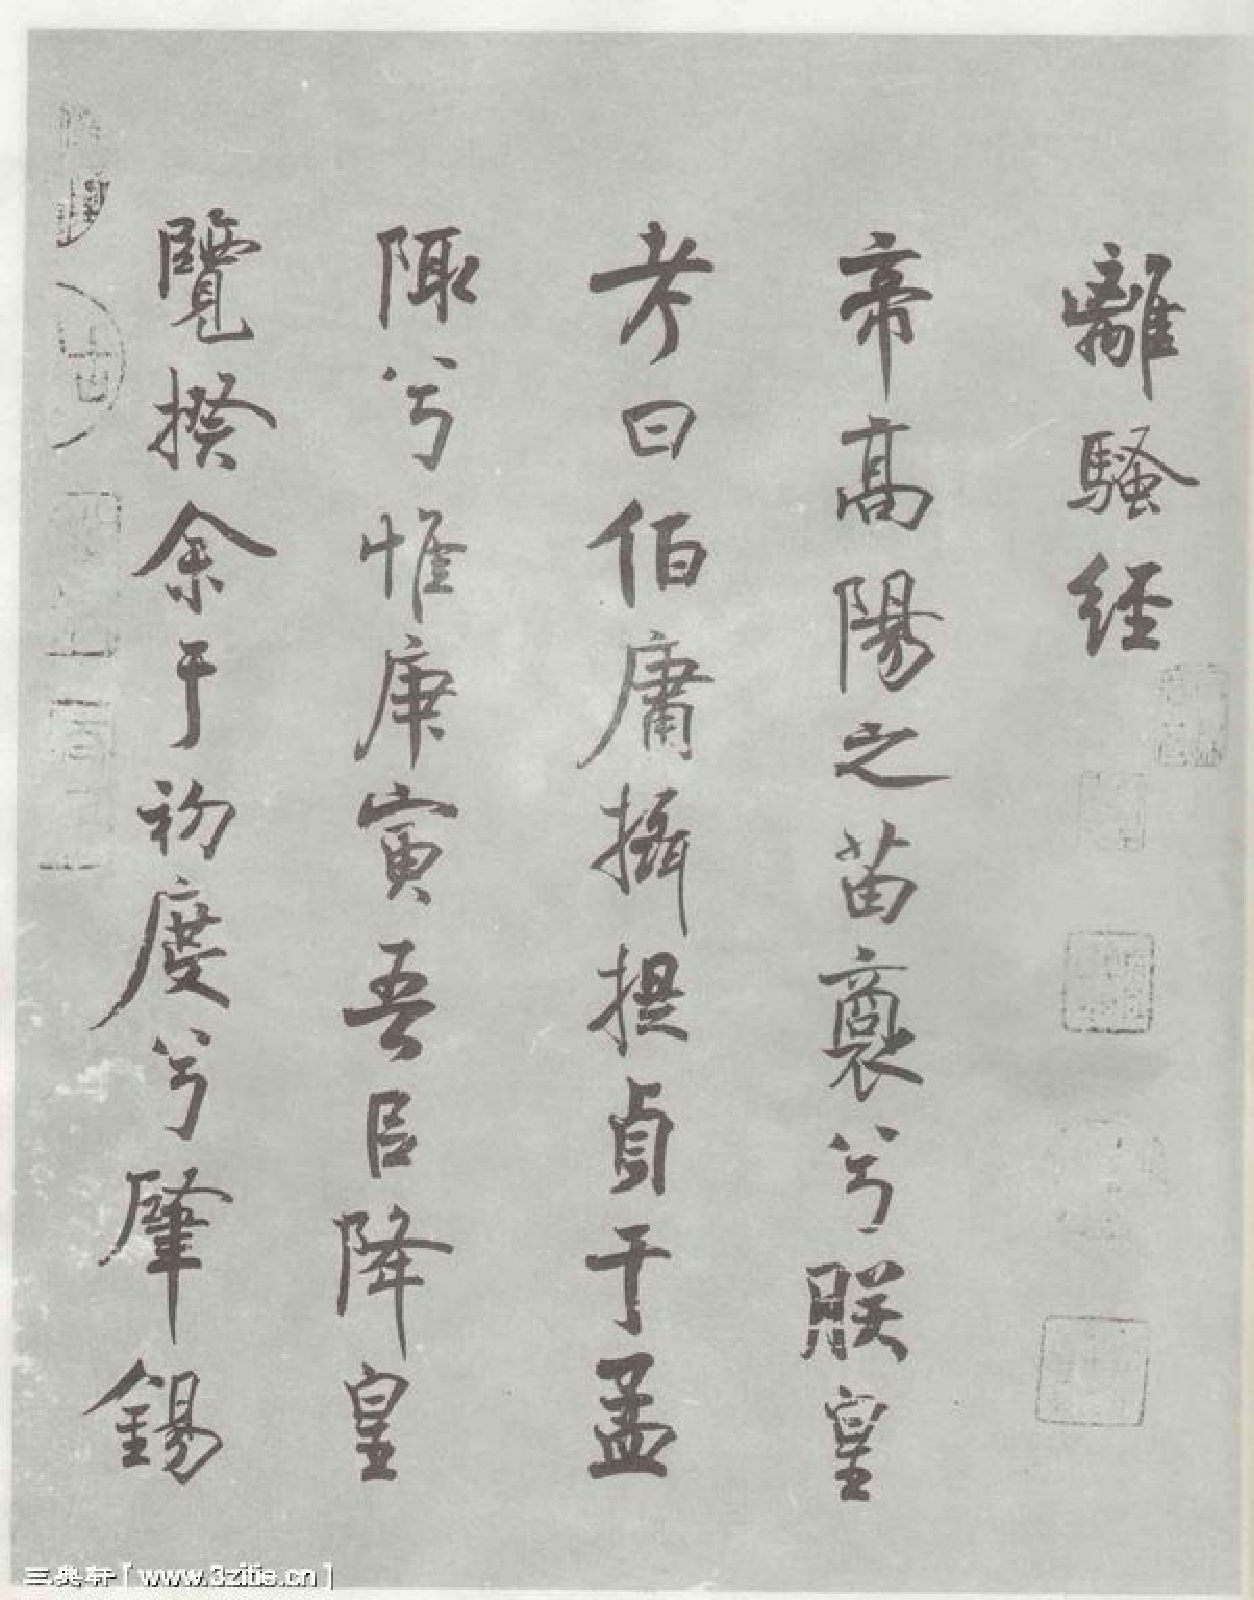 離騷經
帝高陽之苗裔兮朕皇
考曰伯庸攝提貞于孟
陬兮惟庚寅吾㠯降皇
覽揆余于初度兮肇錫
三典轩[www.3zitie.cn]